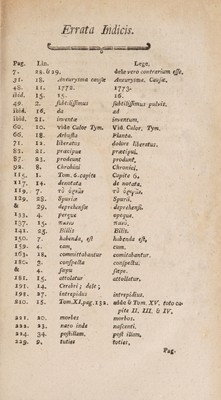 Errata Indicis.
Pag. Lin. Lege.
7. 12. & 29. dele vero contrarium esse.
31. 18. Aneurysma caussæ Aneurysma. Caussæ.
48. 11. 1772. 1773.
ibid. 15. 15. 16.
49. 2. subtilissimus subtilissimus pulvis.
ibid. 16. da ad
ibid. 21. invente inventum.
60. 10. vide Color Tym. Vid. Calor. Tym.
66. 18. Arbusta Planta.
71. 12. liberatus dolore liberatus.
83. 21. præcipue præcipui.
87. 23. prodeunt produnt.
92. 8. Chrobini Chronici.
115. 1. Tom. 6. capite Capite 6.
117. 14. denotata de notata.
119. 7.
129. 28. Spuriæ Spurii.
& 29. deprehensæ deprehensi.
133. 4.
137. 15.
141. 25. Bilis Bilis.
150. 7. habenda, est habenda, est
159. 4. cam, cum.
163. 18. committabantur comitabantur.
180. 3. conspecta conspectu.
& 4. sæpe sæpe.
181. 15. attolatur attollatur.
191. 14. Cerebri; dele ;
198. 27. intrepidus intrepidius.
210. 15. Tom. XI. pag. 132. adde & Tom. XV. toto ca-
pite II. III. & IV.
221. 20. morbes morbos.
222. 23. naro inde nascenti.
224. 34. postillam post illam.
229. 9. tutias toties.
Pag.